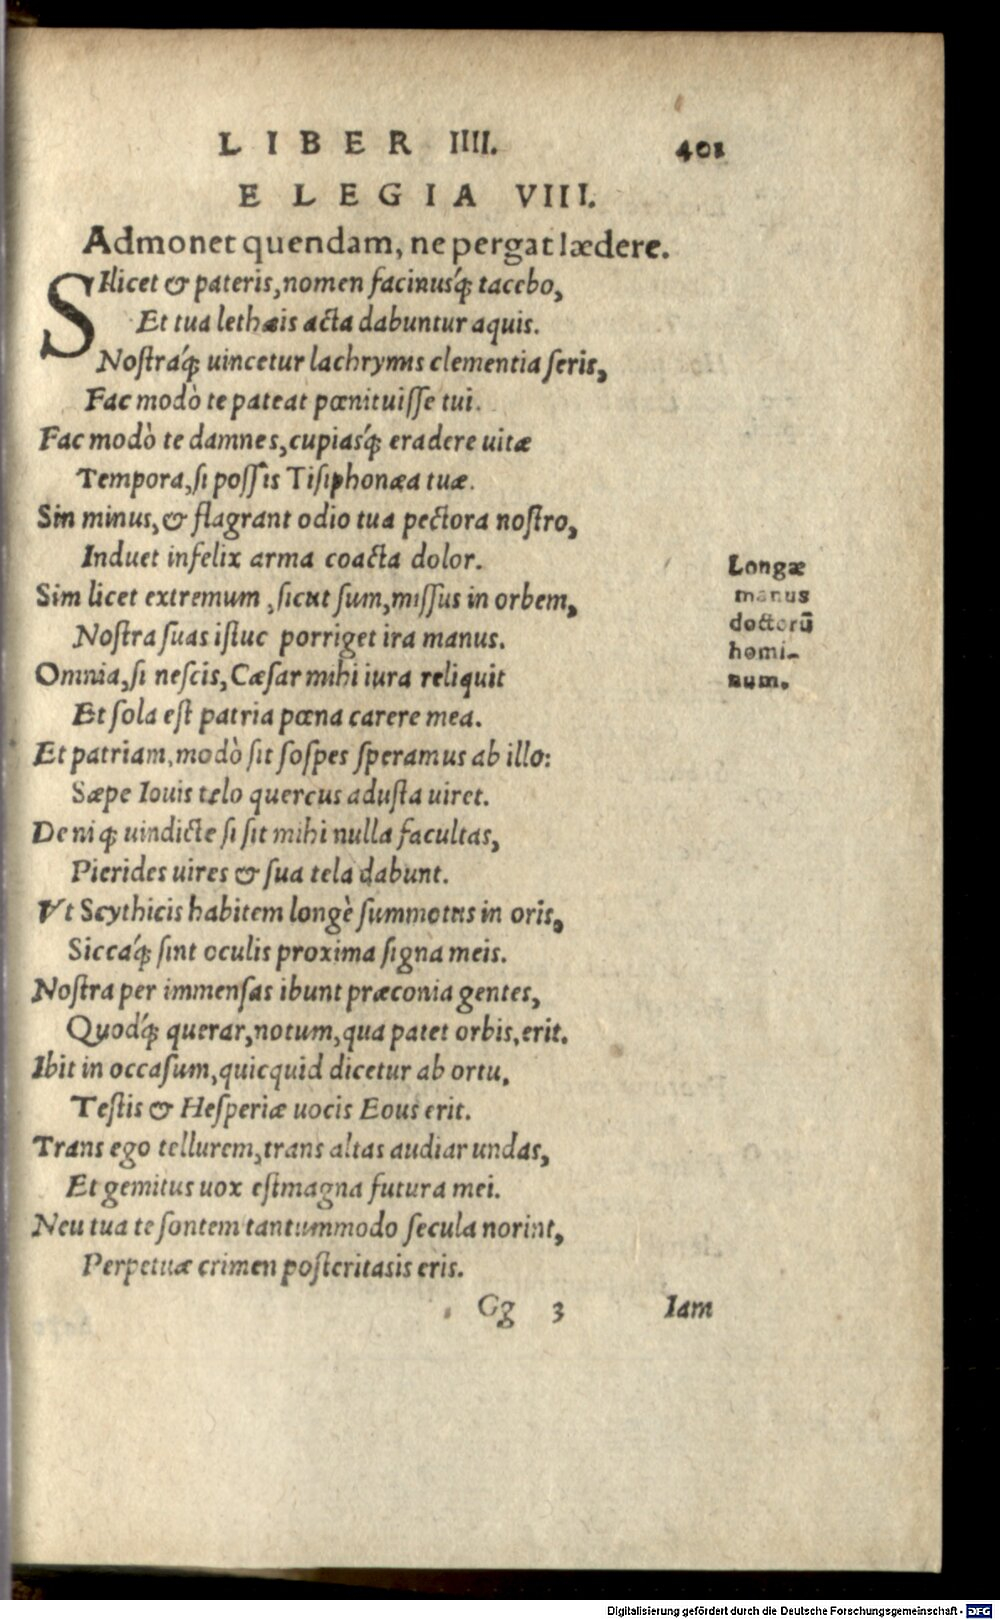 LIBER IIII. 401
ELEGIA VIII.
Admonet quendam, ne pergat lædere.
SIlicet & pateris, nomen facinusq́; tacebo,
Et tua lethæis acta dabuntur aquis.
Nostráq́; uincetur lachrymis clementia seris,
Fac modò te pateat pœnituisse tui.
Fac modò te damnes, cupiasq́; eradere uitæ
Tempora, si possis Tisiphonæa tuæ.
Sin minus, & flagrant odio tua pectora nostro,
Induet infelix arma coacta dolor.
Sim licet extremum, sicut sum, missus in orbem,
Nostra suas istuc porriget ira manus.
Omnia, si nescis, Cæsar mihi iura reliquit
Et sola est patria pœna carere mea.
Et patriam, modò sit sospes speramus ab illo:
Sæpe Iouis telo quercus adusta uiret.
Deniq; uindicte si sit mihi nulla facultas,
Pierides uires & sua tela dabunt.
Vt Scythicis habitem longè summotus in oris,
Siccáq́; sint oculis proxima signa meis.
Nostra per immensas ibunt præconia gentes,
Quodq́; querar, notum, qua patet orbis, erit.
Ibit in occasum, quicquid dicetur ab ortu,
Testis & Hesperiæ uocis Eous erit.
Trans ego tellurem, trans altas audiar undas,
Et gemitus uox est magna futura mei.
Neu tua te sontem tantummodo secula norint,
Perpetuæ crimen posteritasis eris.
Longæ
manus
doctorū
homi-
num.
Gg 3 Iam
Digitalisierung gefördert durch die Deutsche Forschungsgemeinschaft - DFG